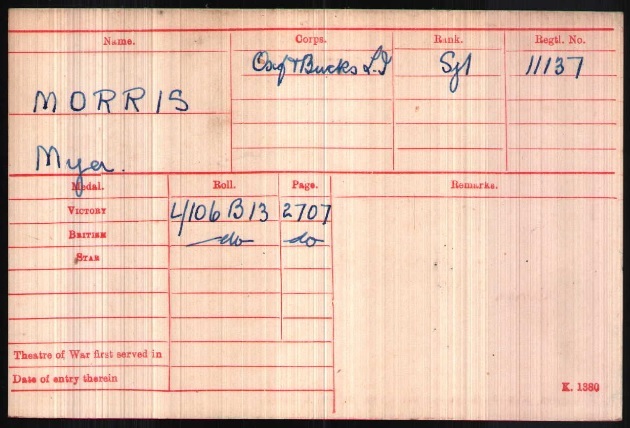 Name. Corps. Rank. Regtl. No.
Oxf & Bucks L.I Sjt 11137
MORRIS
Mya.
Medal. Roll. Page. Remarks.
VICTORY 4/106 B13 2707
BRITISH do do
STAR
Theatre of War first served in
Date of entry therein
K. 1380